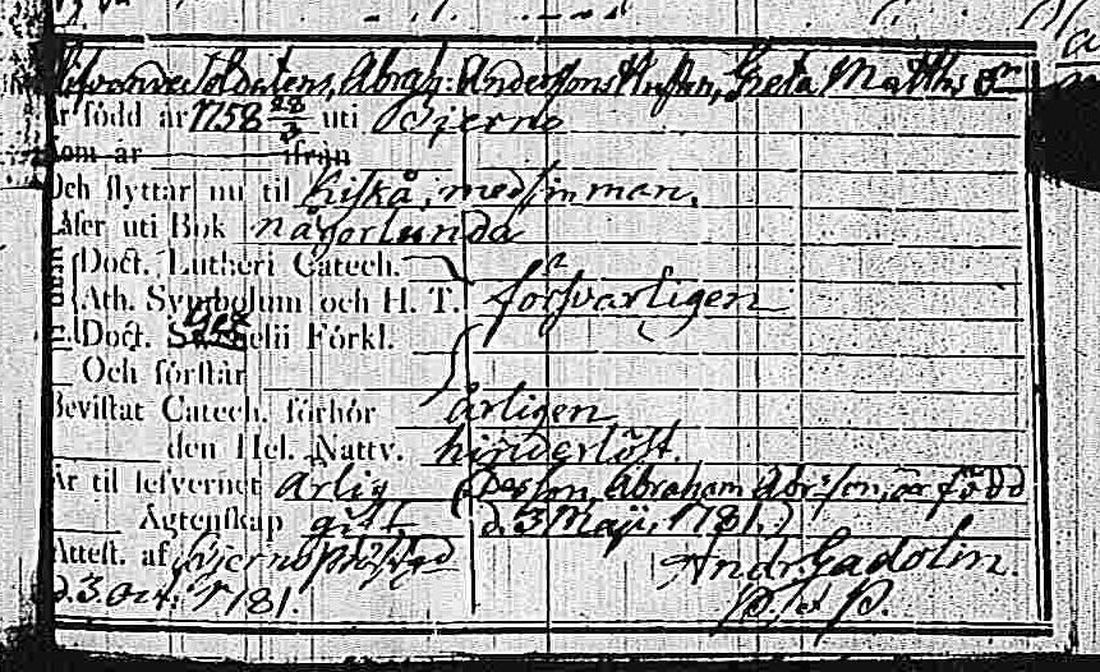 Soldatens, Abrah: Anderssons Hustru, Greta Matths dr
är född år 1758 28/3 uti Bjerno
kom år ifrån
Och flyttar nu til Kiskå, med sin man.
Läser uti Bok någorlunda
Doct. Lutheri Catech.
Ath. Symbolum och H. T. försvarligen
Doct. Förkl.
Och förstår
Bevistat Catech. förhör årligen
den Hel. Nattv. hinderlöst.
Är til lefvernet ärlig (Des son, Abraham Abr:son, är född
Ägtenskap gift d. 3 Maji, 1781.)
Attest. af Bjerno Prästgård Andr. Gadolin.
d. 3 Oct. 1781. P. et P.